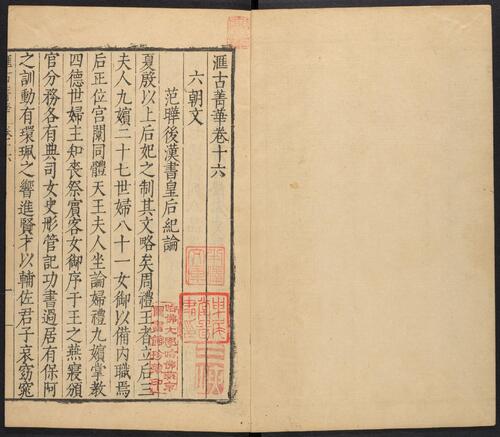 滙古菁華卷十六
六朝文
范曄後漢書皇后紀論
夏殷以上后妃之制其文略矣周禮王者立后三
夫人九嬪二十七世婦八十一女御以備内職焉
后正位宫闈同體天王夫人坐論婦禮九嬪掌教
四德世婦主知喪祭賓客女御序于王之燕寢頒
官分務各有典司女史彤管記功書過居有保阿
之訓動有環珮之響進賢才以輔佐君子哀窈窕
哈佛大學哈佛燕京
圖書館珍藏印